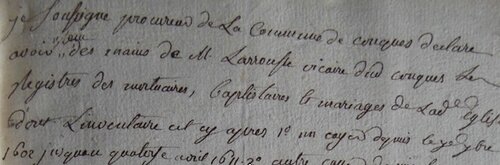 je soussigne procureur de La Commune de conques declare
avoir reçu des mains de M. Larrousse vicaire dud conques Les
Registres des mortuaires, baptistaires & mariages de Lad.e Eglise
dont Linventaire est cy apres 1o un cayer depuis le
1602 jusquau quatorse avril 1611. 2o autre